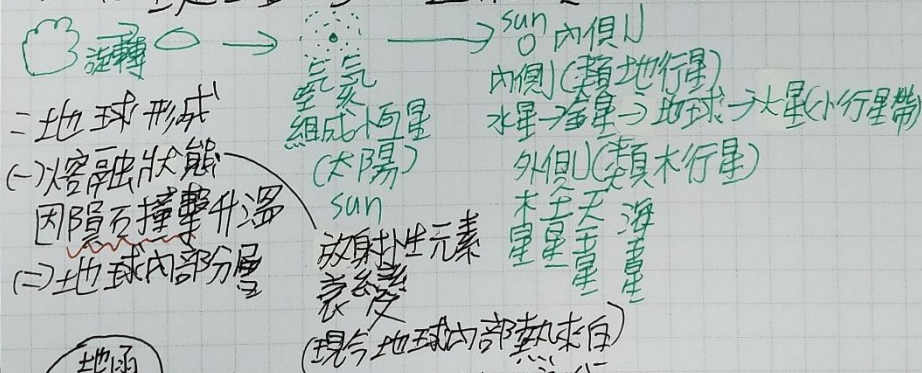 旋轉
空氣
組成恆星
(太陽)
sun
sun
內側
內側(類地行星)
水星→金星→地球→火星(小行星帶)
外側(類木行星)
木星 土星 天王星 海王星
二地球形成
(一)熔融狀態
因隕石撞擊升溫
(二)地球內部分層
放射性元素
衰變
(現今地球內部熱來自)